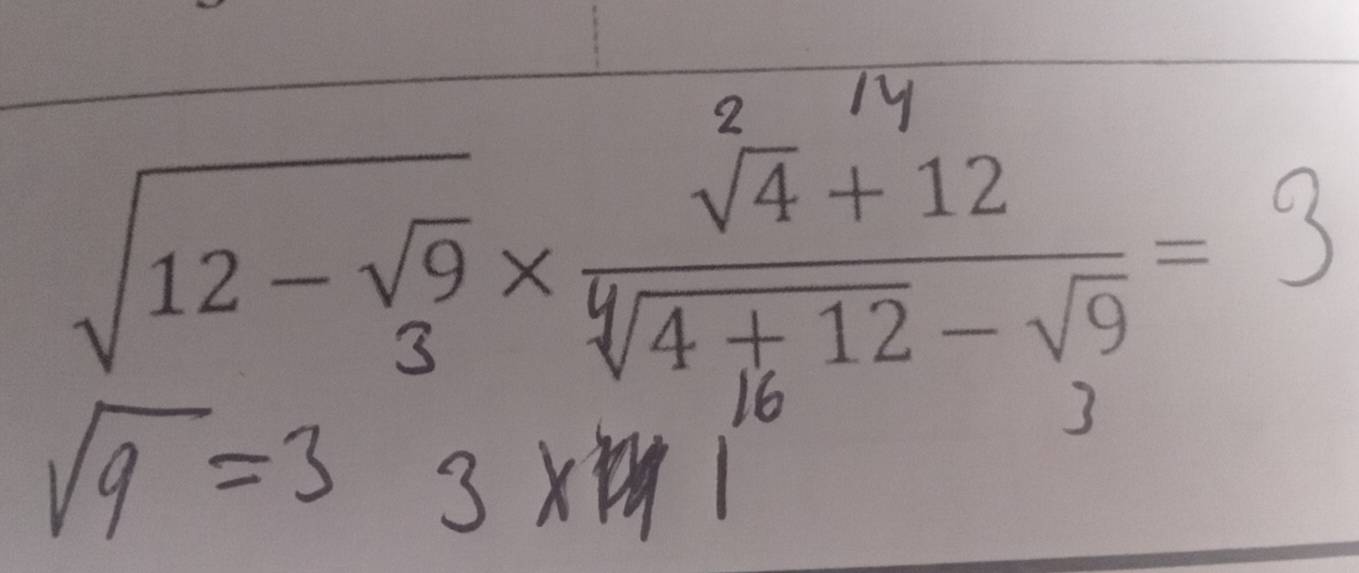 2 14
√(12 − √9) × (√4 + 12) / (√(4 + 12) − √9) = 3
3 4 16 3
√9 = 3 3 × 1